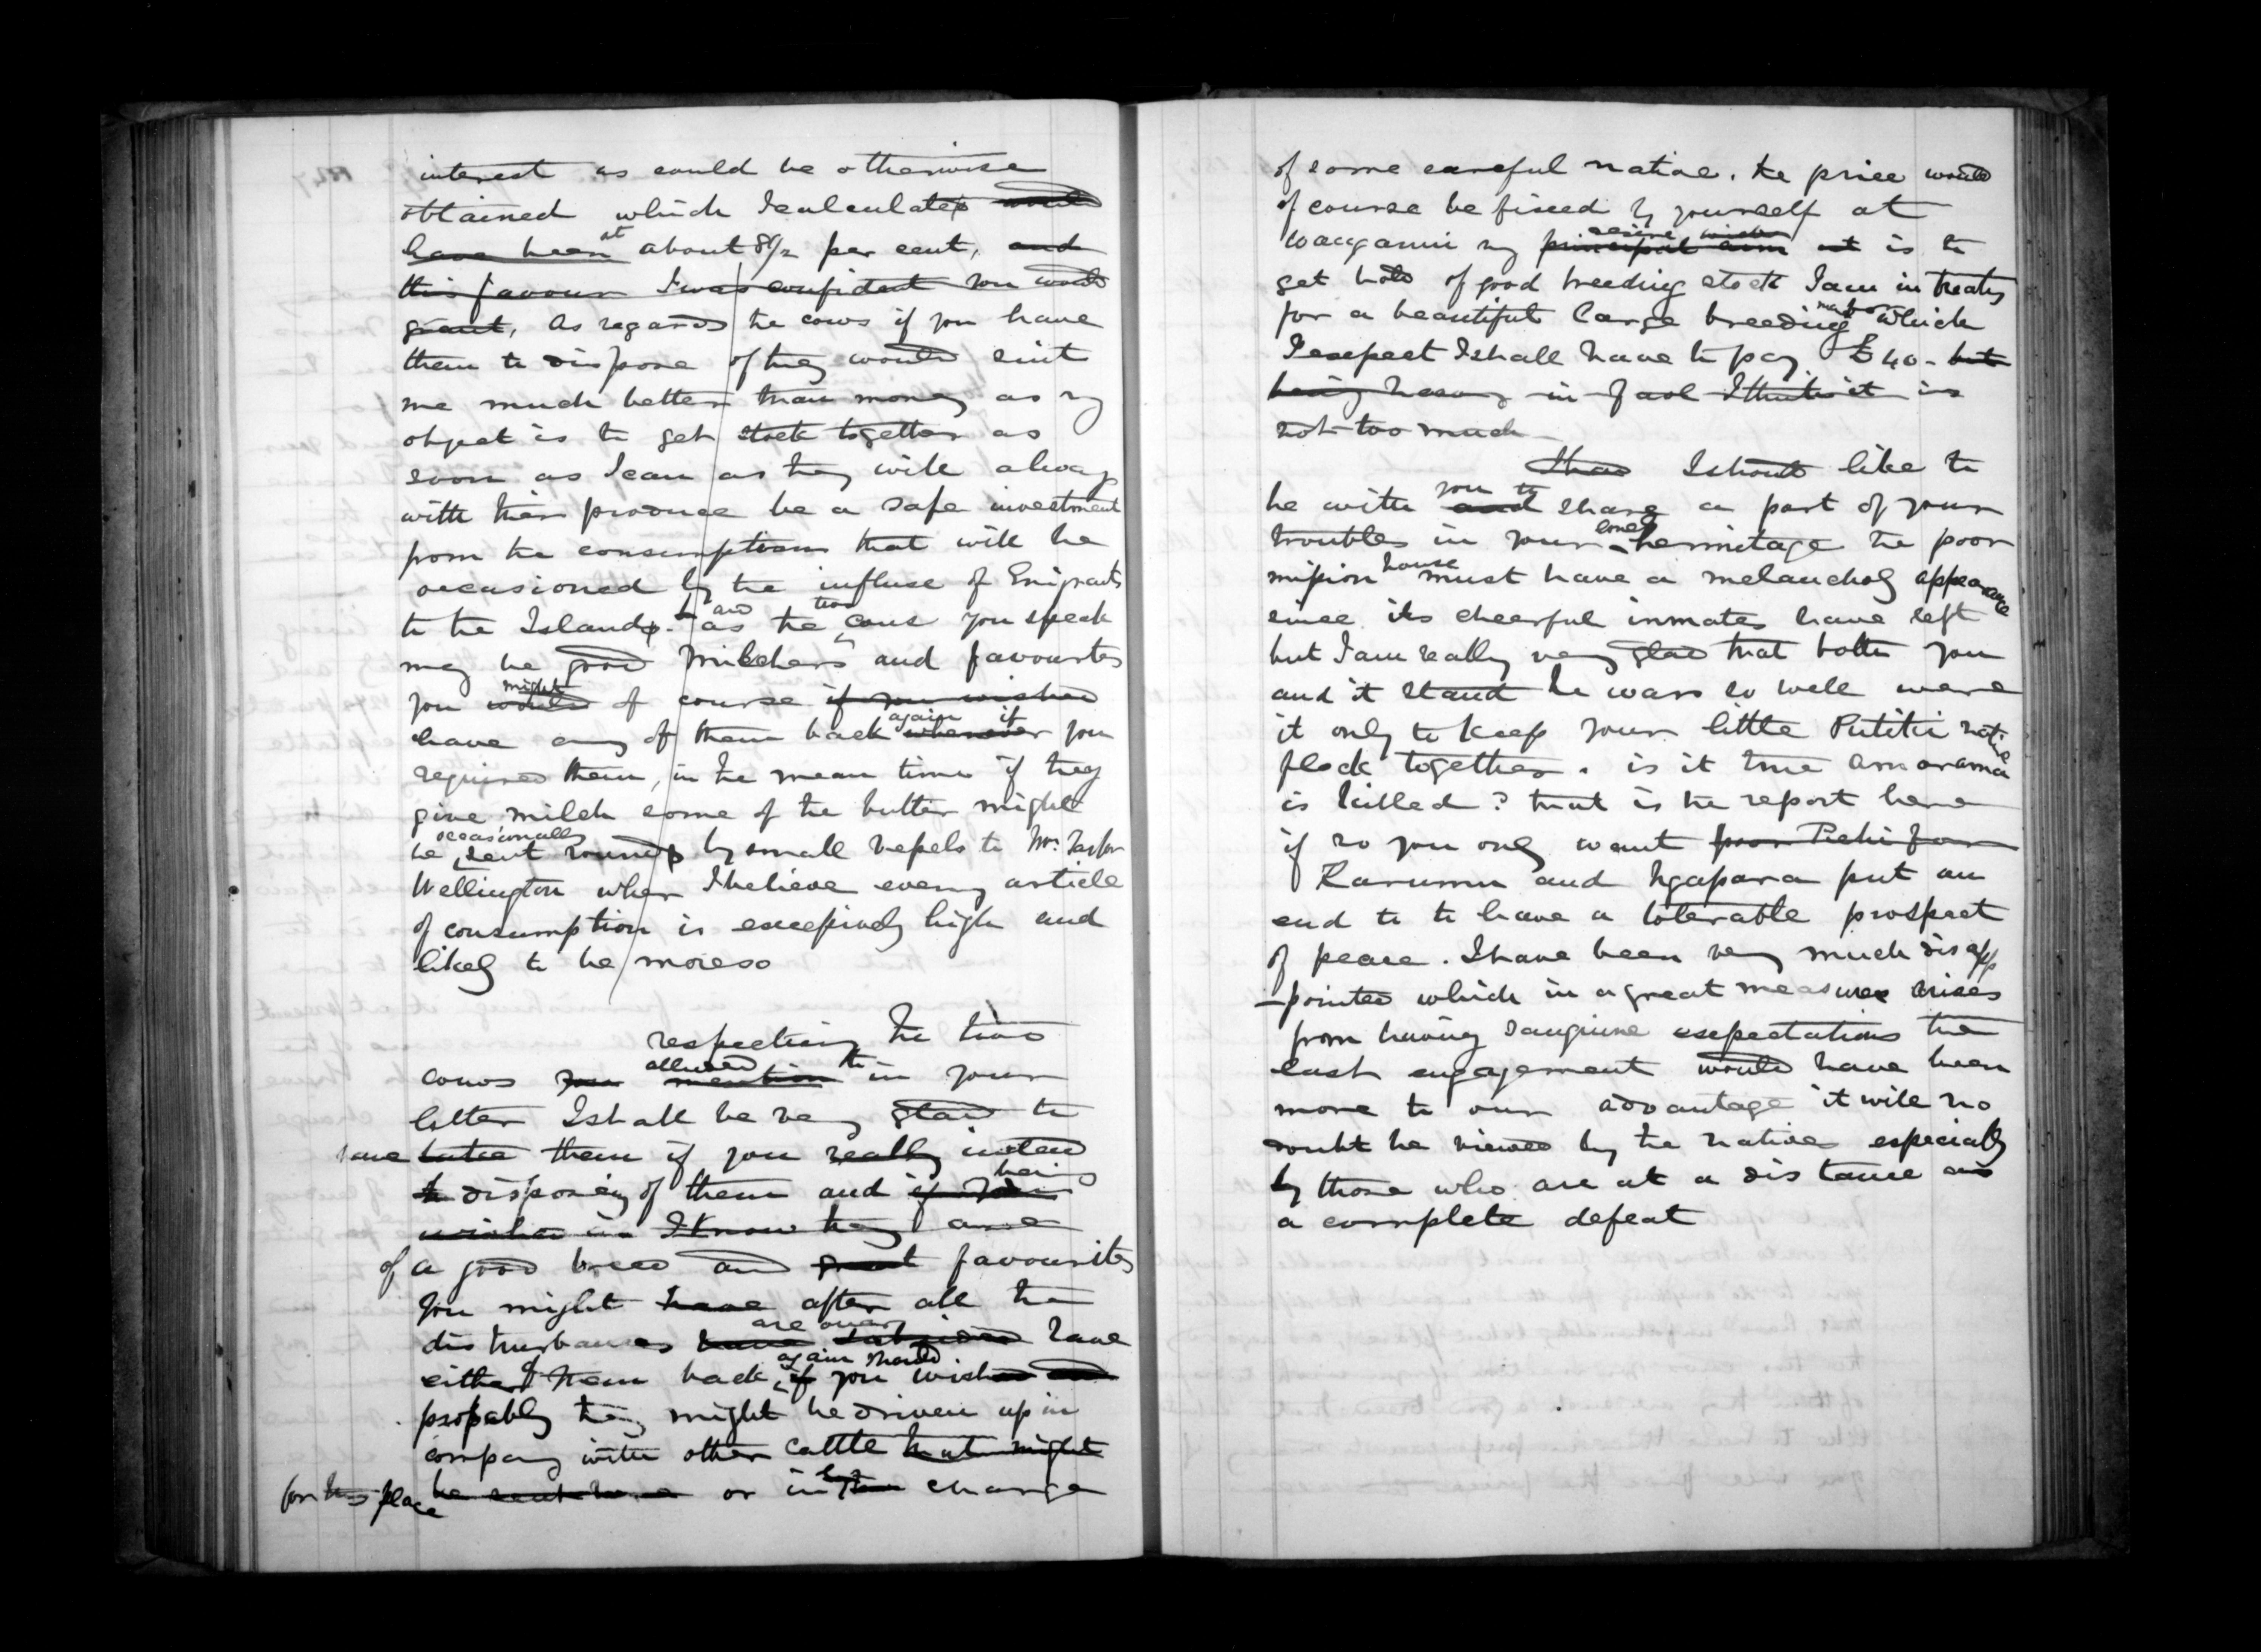 interest as could be otherwise
obtained which I calculated would
have been at about 8½ per cent, and
this favour I was confident you would
grant, As regards the cows if you have
them to dispose of they would suit
me much better than money as my
object is to get stock together as
soon as I can as they will always
with their produce be a safe investment
from the consumptions that will be
occasioned by the influx of Emigrants
to the Islands. and as the two cows you speak
may be good milchers and favourites
you would might of course if you wished
have any of them back again whenever if you
required them, in the mean time if they
give milch some of the butter might
be occasionally sent round by small vessels to Mr. Taylor
Wellington when I believe every article
of consumption is excessively high and
likely to be moreso
respecting the two
cows you mention alluded to in your
letter I shall be very glad to
have take them if you really intend
to disposing of them and if you being
wished as I know they are
of a good breed and great favourites
you might have after all the
disturbances have subsided are over have
either of them back again if should you wished and
propably they might be driven up in
company with other cattle that might
for this place be sent here or in the charge
of some careful native. the price would
of course be fixed by yourself at
Wanganui my principal aim desire wish at is to
get hold of good breeding stock I am in treaty
for a beautiful large breeding mare which
I expect I shall have to pay £40 - but
being heavy in foal I think it is
not too much
I had I should like to
be with and you to share a part of your
troubles in your lonely hermitage the poor
mission house must have a melancholy appearance
since its cheerful inmates have left
but I am really very glad that both you
and it stand the wars so well were
it only to keep your little Putiki native
flock together. is it true Amarama
is killed? that is the report here
if so you only want poor Pehi for
Karumu and Ngapara put an
end to to have a tolerable prospect
of peace. I have been very much disapp
-pointed which in a great measure arises
from having sanguine expectations the
last engagement would have been
more to our advantage it will no
doubt be viewed by the natives especially
by those who are at a distance as
a complete defeat